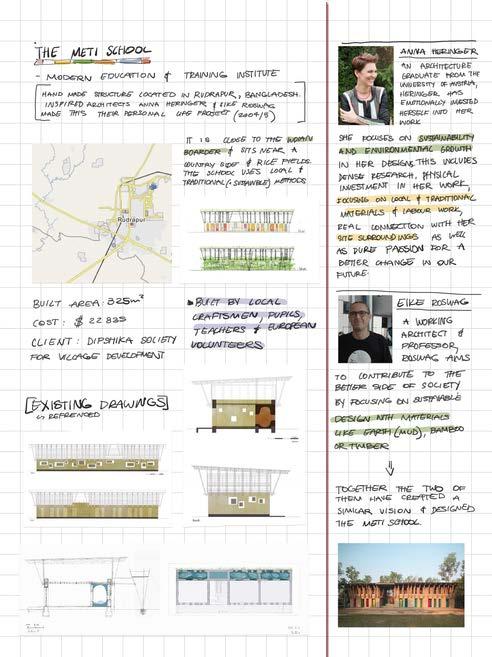 THE METI SCHOOL
- MODERN EDUCATION & TRAINING INSTITUTE
HAND MADE STRUCTURE LOCATED IN RUDRAPUR, BANGLADESH.
INSPIRED ARCHITECTS ANNA HERINGER & EIKE ROSWAG
MADE THIS THEIR PERSONAL LIFE PROJECT (2004/5)
IT IS CLOSE TO THE
BOARDER & SITS NEAR A
COUNTRY SIDE & RICE FIELDS.
THE SCHOOL USES LOCAL &
TRADITIONAL (+ SUSTAINABLE) METHODS
Rudrapur
BUILT AREA: 325m²
COST: $ 22 835
CLIENT: DIPSHIKA SOCIETY
FOR VILLAGE DEVELOPMENT
BUILT BY LOCAL
CRAFTSMEN, PUPILS,
TEACHERS & EUROPEAN
VOLUNTEERS
[EXISTING DRAWINGS]
↳ REFRENCED
ANNA HERINGER
AN ARCHITECTURE
GRADUATE FROM THE
UNIVERSITY OF AUSTRIA,
HERINGER HAS
EMOTIONALLY INVESTED
HERSELF INTO HER
WORK
SHE FOCUSES ON SUSTAINABILITY
AND ENVIRONMENTAL GROWTH
IN HER DESIGNS. THIS INCLUDES
DENSE RESEARCH, PHYSICAL
INVESTMENT IN HER WORK,
FOCUSING ON LOCAL & TRADITIONAL
MATERIALS & LABOUR WORK,
REAL CONNECTION WITH HER
SITE SURROUNDINGS AS WELL
AS PURE PASSION FOR A
BETTER CHANGE IN OUR
FUTURE.
EIKE ROSWAG
A WORKING
ARCHITECT &
PROFESSOR,
ROSWAG AIMS
TO CONTRIBUTE TO THE
BETTER SIDE OF SOCIETY
BY FOCUSING ON SUSTAINABLE
DESIGN WITH MATERIALS
LIKE EARTH (MUD), BAMBOO
OR TIMBER
TOGETHER THE TWO OF
THEM HAVE CREATED A
SIMILAR VISION & DESIGNED
THE METI SCHOOL.